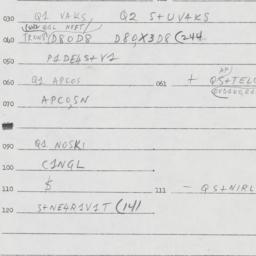 030 Q1 VAKS, Q2 S+UVAKS
040 TRONS/D8OD8 D8O,X3D8 (244
050 P1DE4S+V1
060 Q1 APCOS 061 + QS+TELO
070 APCO,SN
080
090 Q1 NOSKI
100 C1NGL
110 $ 111 - QS+NIRL
120 S+NE4R1V1T (141